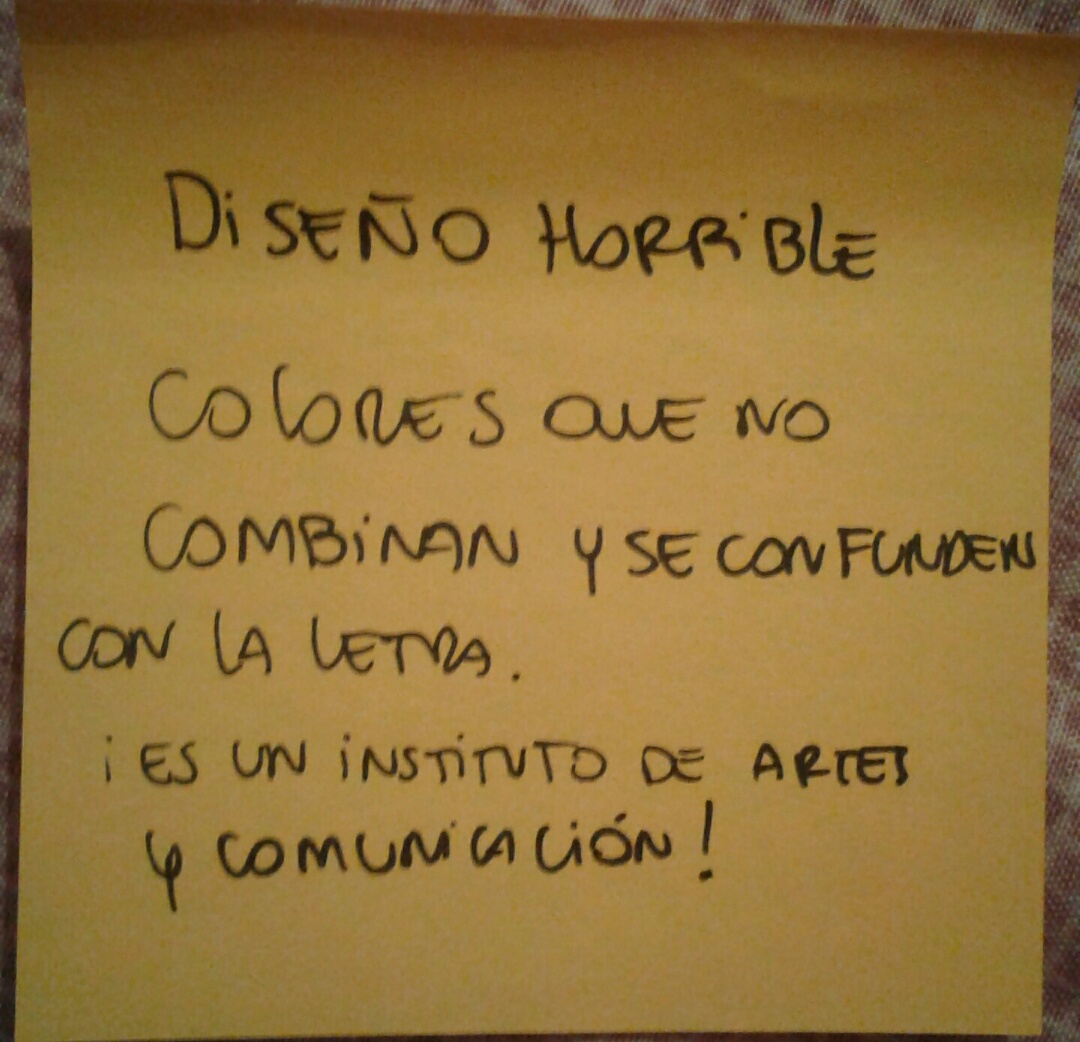 DiSEÑO HORRiBLE
COLORES QUE NO
COMBiNAN Y SE CONFUNDEN
CON LA LETRA.
¡ES UN iNSTiTUTO DE ARTES
Y COMUNiCACiÓN!